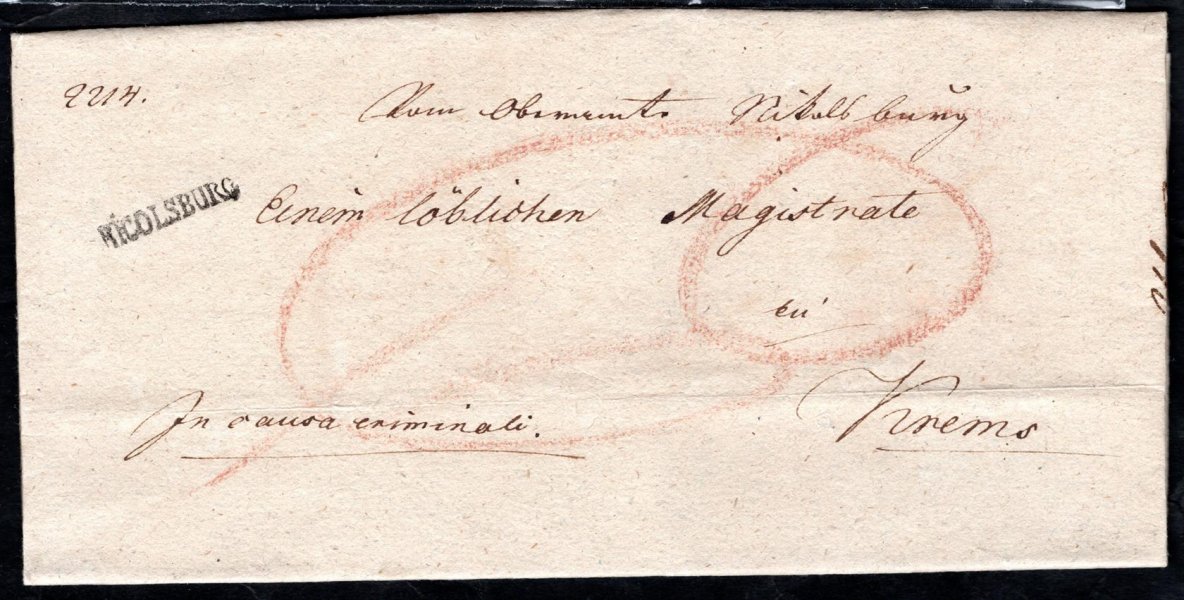 2214.
Vom Oberamte Nikolsburg
NICOLSBURG
Einem löblichen Magistrate
zu
Krems
In causa criminali.